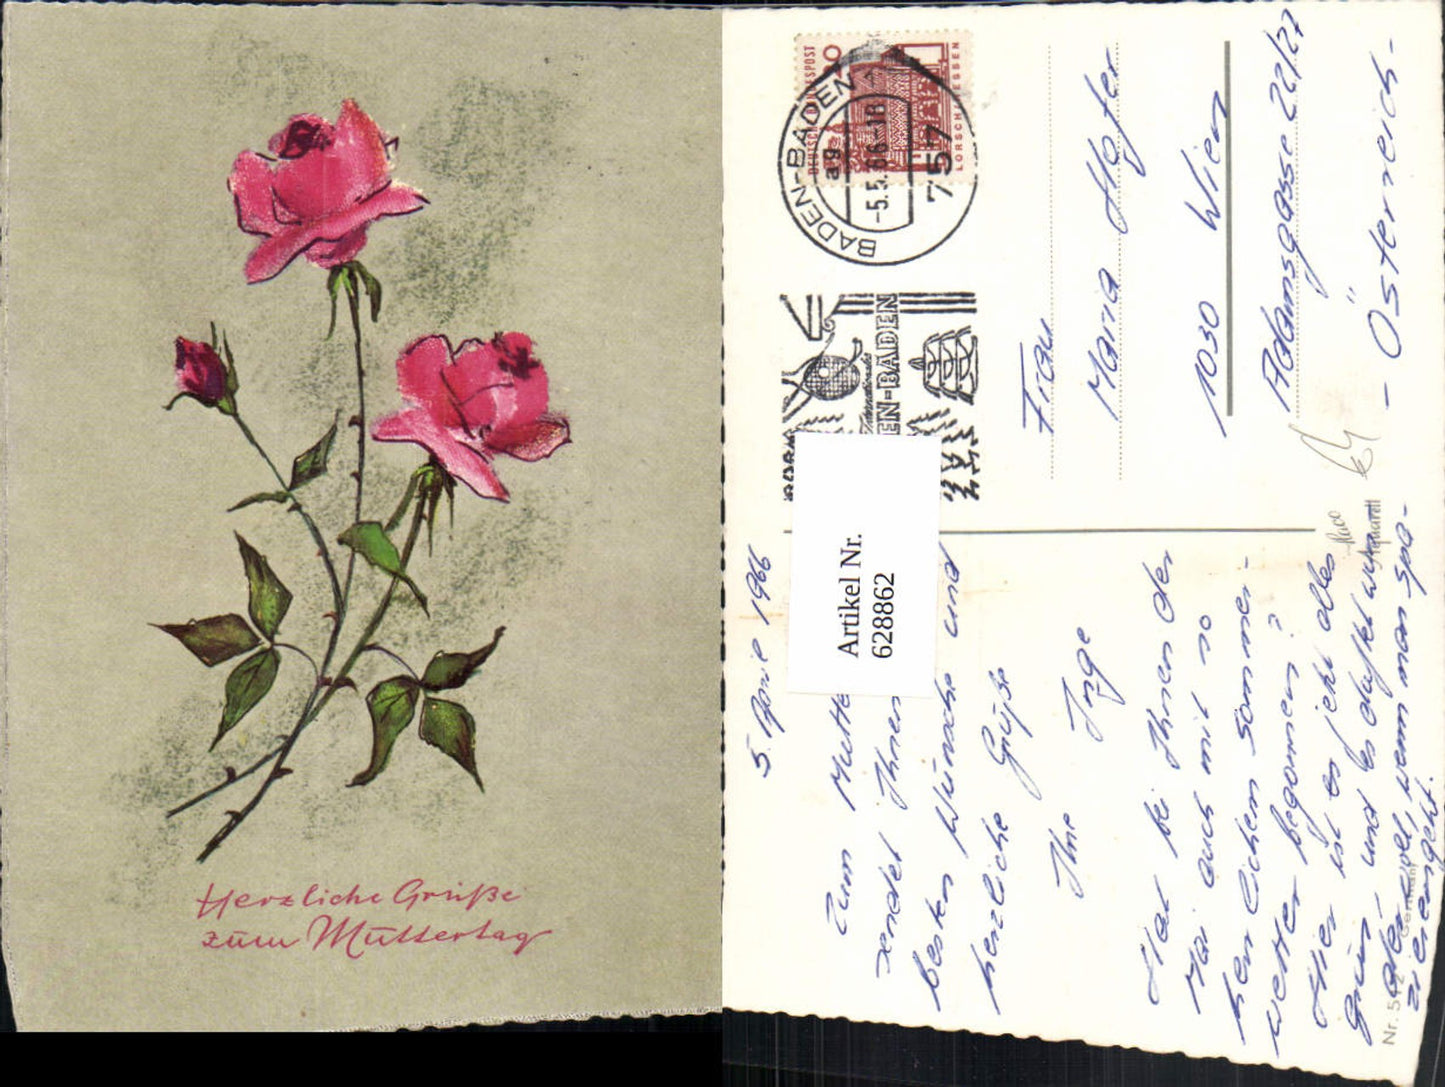 Herzliche Grüße
zum Muttertag
DEUTSCHE BUNDESPOST
LORSCH HESSEN
BADEN-BADEN
ag
-5.5.66-18
757
EN-BADEN
Frau
Maria Hofer
1030 Wien
Adamsgasse 22/27
- Österreich -
Artikel Nr.
628862
5. April 1966
Zum Mutte
sendet Ihnen
besten Wünsche und
herzliche Grüße
Ihre Inge
Hat bei Ihnen der
Mai auch mit so
herrlichem Sommer-
wetter begonnen?
Hier ist es jetzt alles
grün und es duftet wun-
dervoll, wenn man spa-
zierengeht.
Nr. 512
Germany